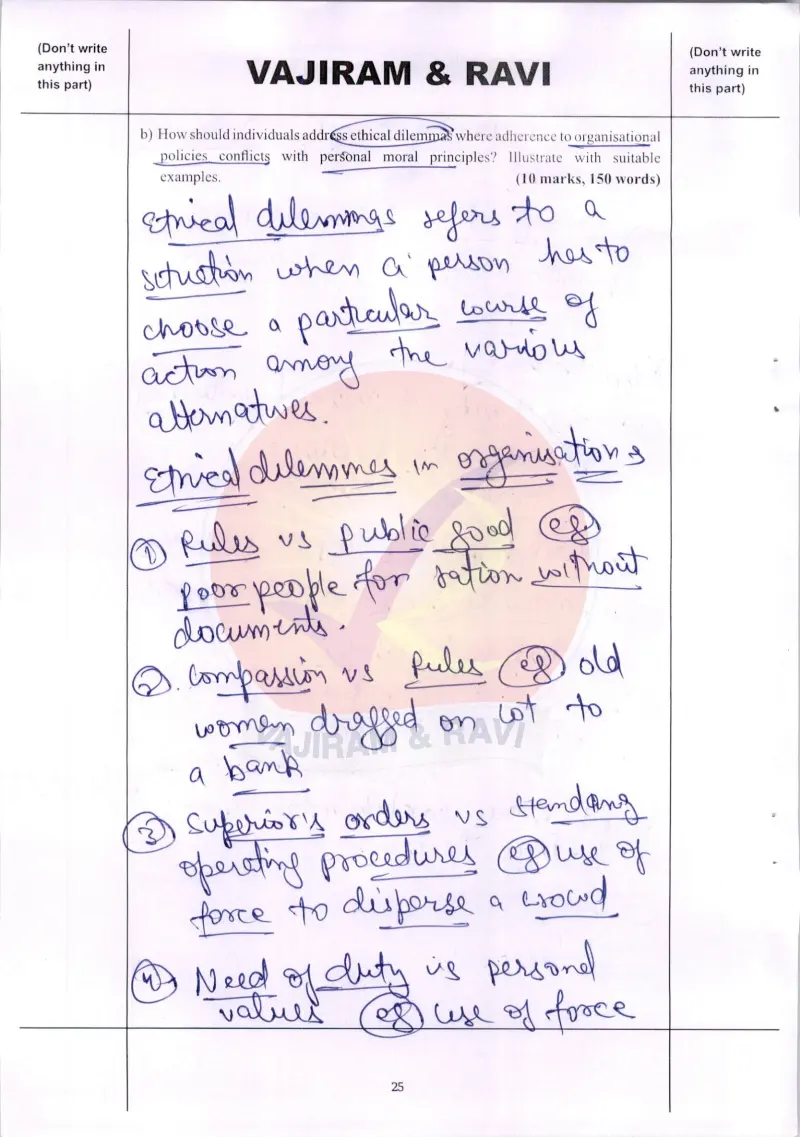 (Don't write
anything in
this part)
VAJIRAM & RAVI
(Don't write
anything in
this part)
b) How should individuals address ethical dilemmas where adherence to organisational
policies conflicts with personal moral principles? Illustrate with suitable
examples. (10 marks, 150 words)
Ethical dilemmas refers to a
situation when a person has to
choose a particular course of
action among the various
alternatives.
Ethical dilemmas in organisations
① Rules vs public good eg
poor people for ration without
documents.
②. Compassion vs Rules eg old
women dragged on cot to
a bank
VAJIRAM & RAVI
③ Superior's orders vs standing
operating procedures eg use of
force to disperse a crowd
④ Need of duty vs personal
values eg use of force
25